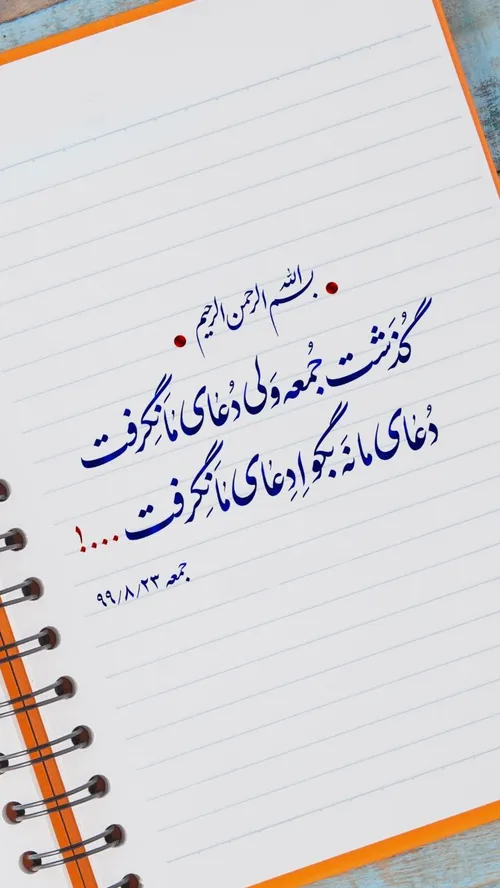 بسم الله الرحمن الرحیم
گُذَشت جُمعه وَلی دُعای ما نَگِرفت
دُعای ما نَه بگو اِدِعای ما نَگِرفت ....!
جمعه ۹۹/۸/۲۳